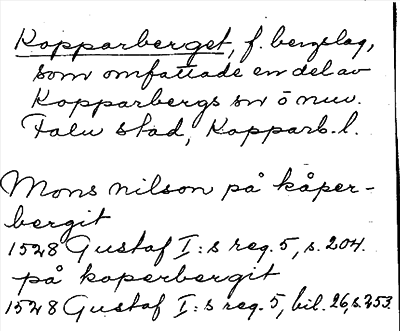 Kopparberget, f. bergslag,
som omfattade en del av
Kopparbergs sn o nuv.
Falu stad, Kopparb. l.
Mons nilson på kåper-
bergit
1528 Gustaf I:s reg. 5, s. 204.
på koperbergit
1528 Gustaf I:s reg. 5, bil. 26, s. 253.